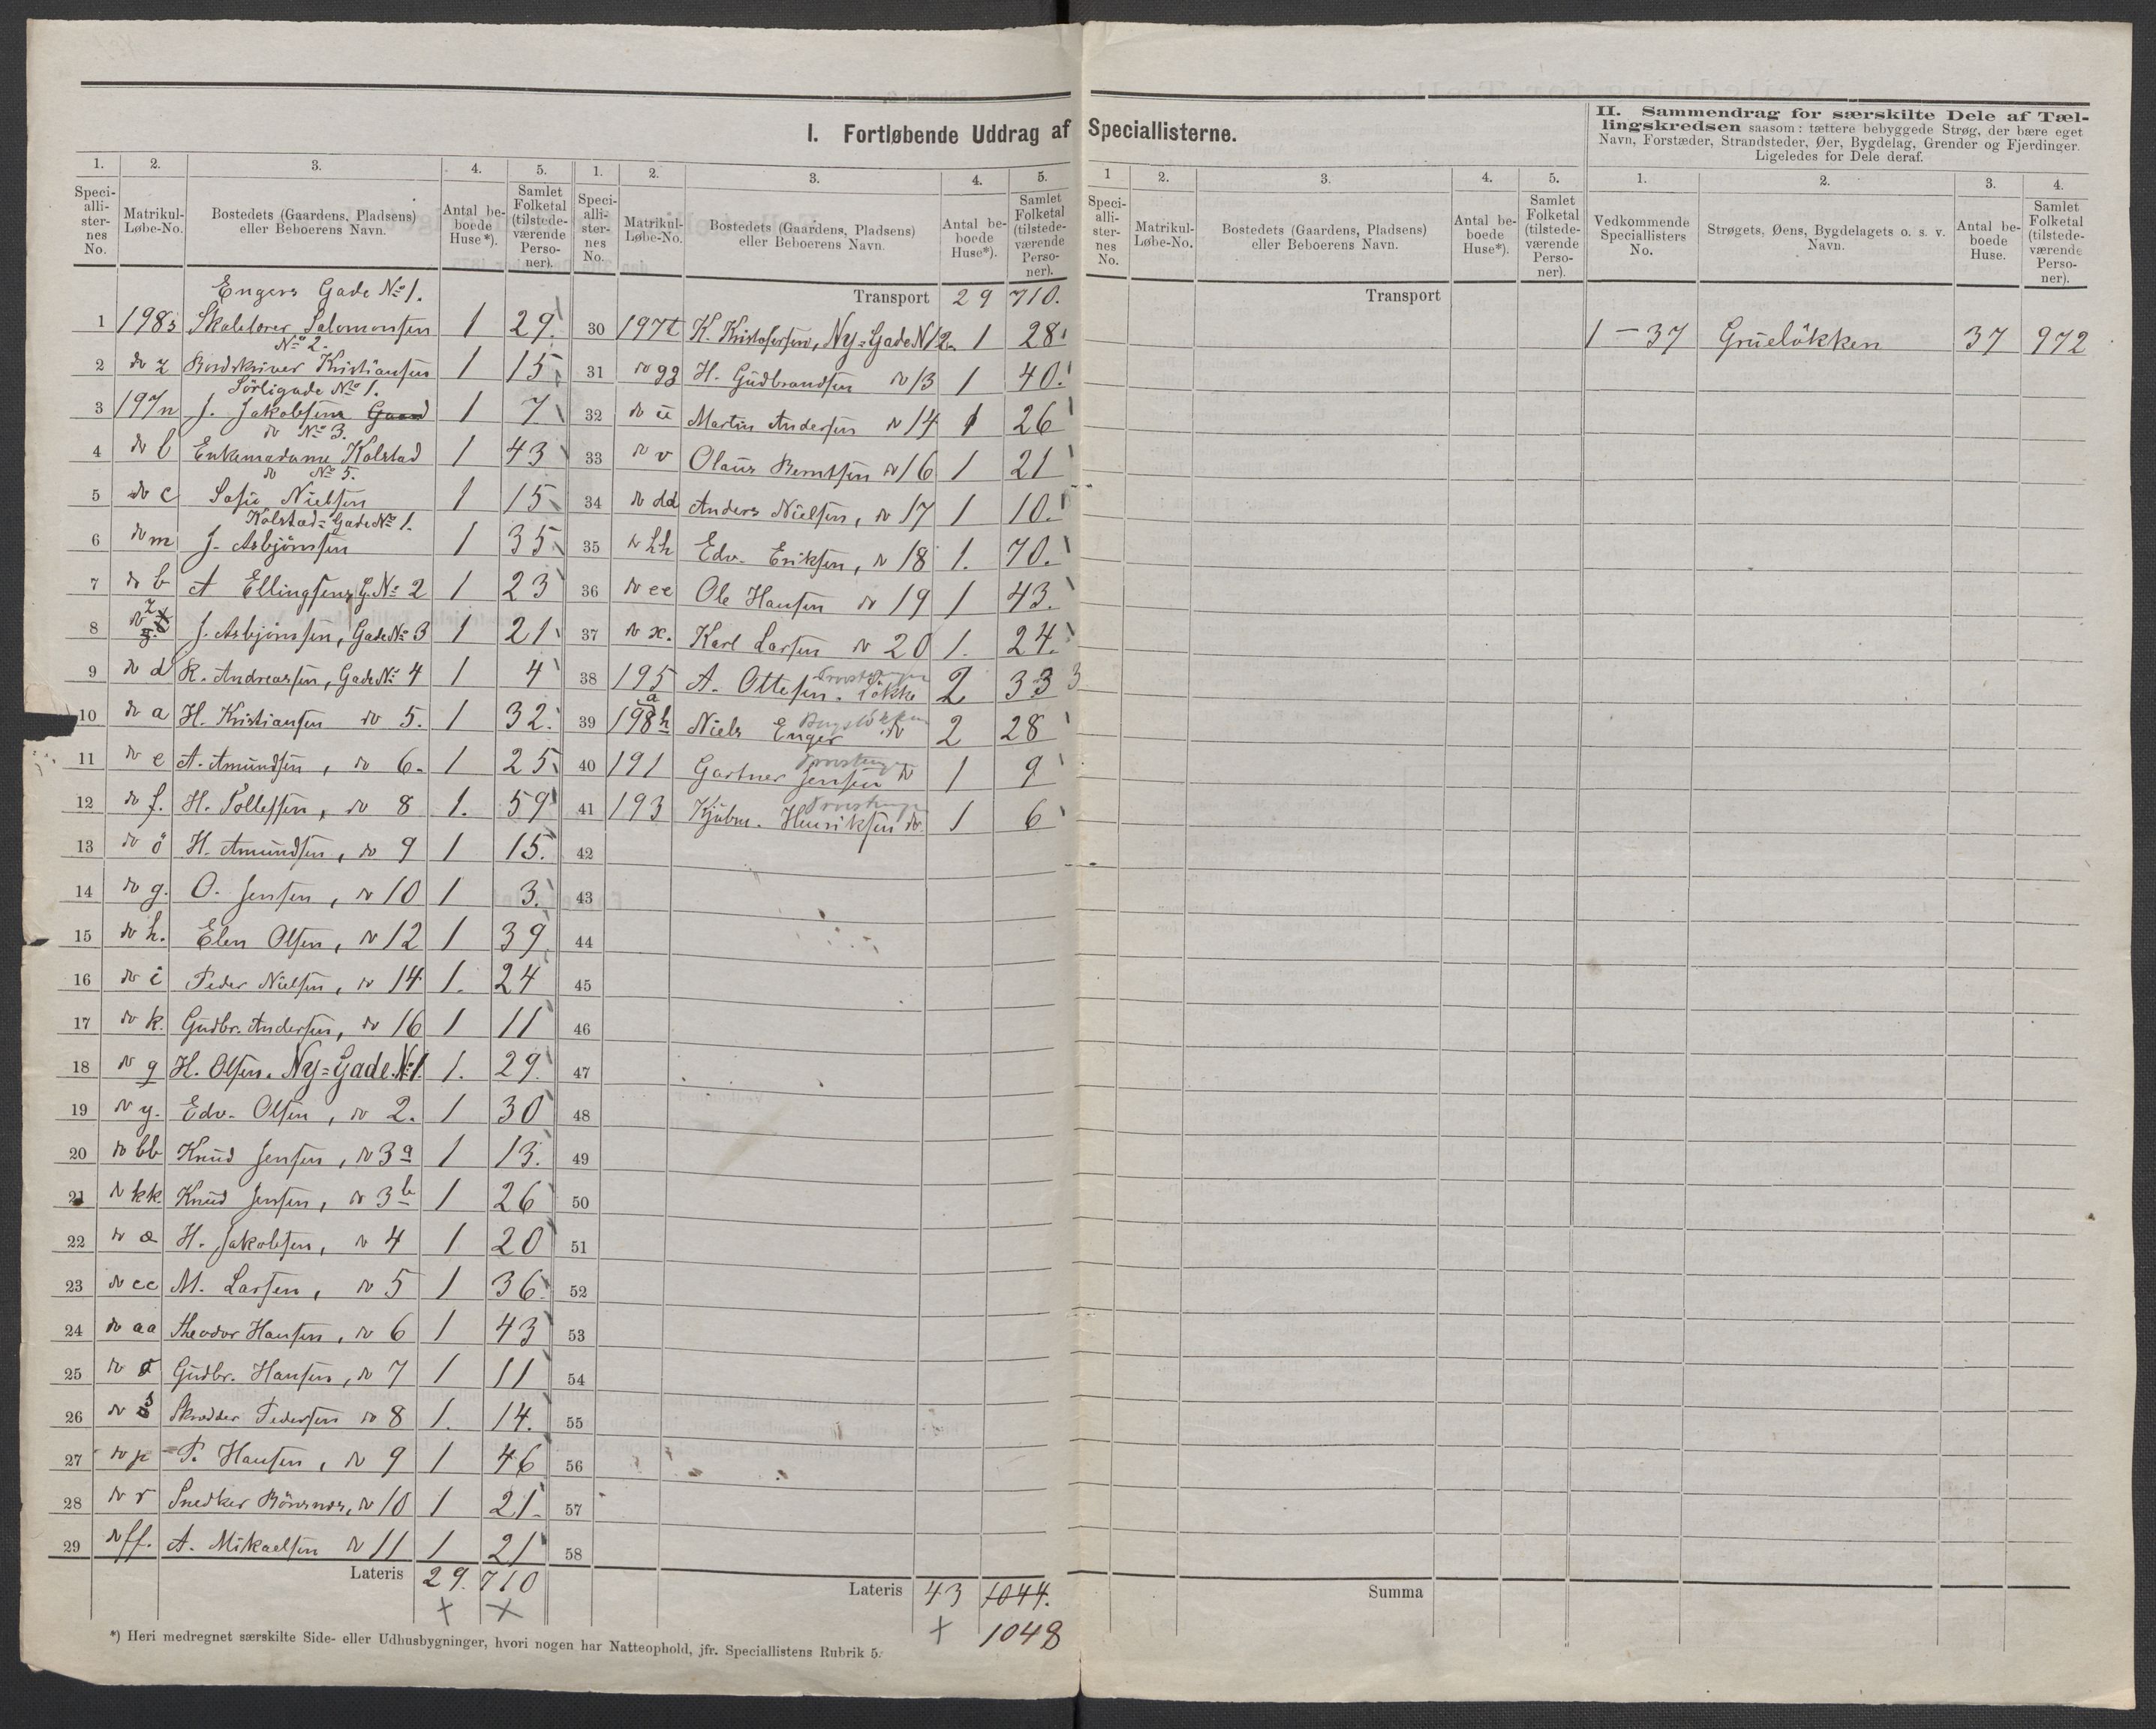 I. Fortløbende Uddrag af Speciallisterne.
1. 2. 3. 4. 5.
Speciallisternes No. Matrikul-Løbe-No. Bostedets (Gaardens, Pladsens) eller Beboerens Navn. Antal beboede Huse*). Samlet Folketal (tilstedeværende Personer).
Engers Gade No 1.
1 198s Salomonsen 1 29.
No 2.
2 do z Kristiansen 1 15
Sörligade No 1.
3 197n J. Jakobsens Gaard 1 7
do No 3.
4 do l Enkemadame Kolstad 1 43
do No 5.
5 do c Sofie Nielsen 1 15
Kolstad-Gade No 1.
6 do m J. Asbjörnsen 1 35
7 do b A Ellingsens G. No 2 1 23
8 do z J. Asbjörnsen, Gade No 3 1 21
9 do d R. Andreassen, Gade No 4 1 4
10 do a H. Kristiansen do 5. 1 32.
11 do e A. Amundsen, do 6. 1 25
12 do f. H. Tollefsen, do 8 1. 59
13 do ö H. Amundsen, do 9 1 15.
14 do g. O. Jensen, do 10 1 3.
15 do h. Elen Olsen, do 12 1 39
16 do i Peder Nielsen, do 14 1. 24
17 do k. Gudbr. Andersen, do 16 1 11
18 do q H. Olsen. Ny=Gade. No 1. 1. 29.
19 do y. Edv. Olsen, do 2. 1 30
20 do bb Knud Jensen, do 3a 1 13.
21 do kk. Knud Jensen, do 3b 1 26
22 do æ H. Jakobsen, do 4 1 20
23 do cc M. Larsen, do 5 1 36.
24 do aa Theodor Hansen, do 6 1 43
25 do Gudbr. Hansen, do 7 1 11
26 do s Skrædder Pedersen do 8 1. 14.
27 do p P. Hansen, do 9 1 46
28 do r Snedker do 10 1 21.
29 do ff. A. Mikaelsen do 11 1 21
Lateris 29. 710
*) Heri medregnet særskilte Side- eller Udhusbygninger, hvori nogen har Natteophold, jfr. Speciallistens Rubrik 5.
1. 2. 3. 4. 5.
Speciallisternes No. Matrikul-Løbe-No. Bostedets (Gaardens, Pladsens) eller Beboerens Navn. Antal beboede Huse*). Samlet Folketal (tilstedeværende Personer).
Transport 29 710.
30 197t K. Kristofersen, Ny=Gade N 12. 1 28
31 do gg H. Gudbrandsen do 13 1 40.
32 do u Martin Andersen do 14 1 26
33 do v Olaus Berntsen do 16 1 21
34 do dd Anders Nielsen, do 17 1 10.
35 do hh Edv. Eriksen, do 18 1. 70.
36 do ee Ole Hansen do 19 1 43.
37 do x. Karl Larsen do 20 1. 24.
38 195 A. Ottesen. Lökke 2 33 3
39 198h Niels Enger do 2 28
40 191 Gartner Jensen do 1 9
41 193 Kjöbm. Henriksen do. 1 6
42
43
44
45
46
47
48
49
50
51
52
53
54
55
56
57
58
Lateris 43 1044.
1048
1 2. 3. 4. 5.
Speciallisternes No. Matrikul-Løbe-No. Bostedets (Gaardens, Pladsens) eller Beboerens Navn. Antal beboede Huse*). Samlet Folketal (tilstedeværende Personer).
Transport
Summa
II. Sammendrag for særskilte Dele af Tæl-
lingskredsen saasom: tættere bebyggede Strøg, der bære eget
Navn, Forstæder, Strandsteder, Øer, Bygdelag, Grender og Fjerdinger.
Ligeledes for Dele deraf.
1. 2. 3. 4.
Vedkommende Speciallisters No. Strøgets, Øens, Bygdelagets o. s. v. Navn. Antal beboede Huse. Samlet Folketal (tilstedeværende Personer).
1 – 37 Gruelökken 37 972